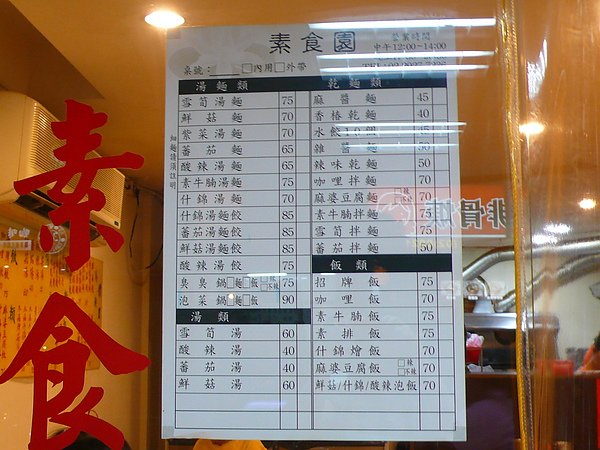 素食園
營業時間
中午12:00~14:00
桌號: □內用□外帶
細麵請須註明
湯麵類
雪筍湯麵 75
鮮菇麵 70
紫菜湯麵 70
蕃茄麵 65
酸辣湯麵 65
素牛腩湯麵 75
什錦湯麵 70
什錦湯麵餃 85
蕃茄湯麵餃 85
鮮菇湯麵餃 85
酸辣湯餃 75
臭臭鍋□麵□飯 □辣□不辣 75
泡菜鍋□麵□飯 90
湯類
雪筍湯 60
酸辣湯 40
蕃茄湯 40
鮮菇湯 60
乾麵類
麻醬麵 45
香椿乾麵 40
水餃10個
雜醬麵 50
辣味乾麵 50
咖哩拌麵 70
麻婆豆腐麵 □辣□不辣 70
素牛腩拌麵 75
雪筍拌麵 75
蕃茄拌麵 50
飯類
招牌飯 75
咖哩飯 70
素牛腩飯 75
素排飯 75
什錦燴飯 70
麻婆豆腐飯 □辣□不辣 70
鮮菇/什錦/酸辣泡飯 70
素食
排骨